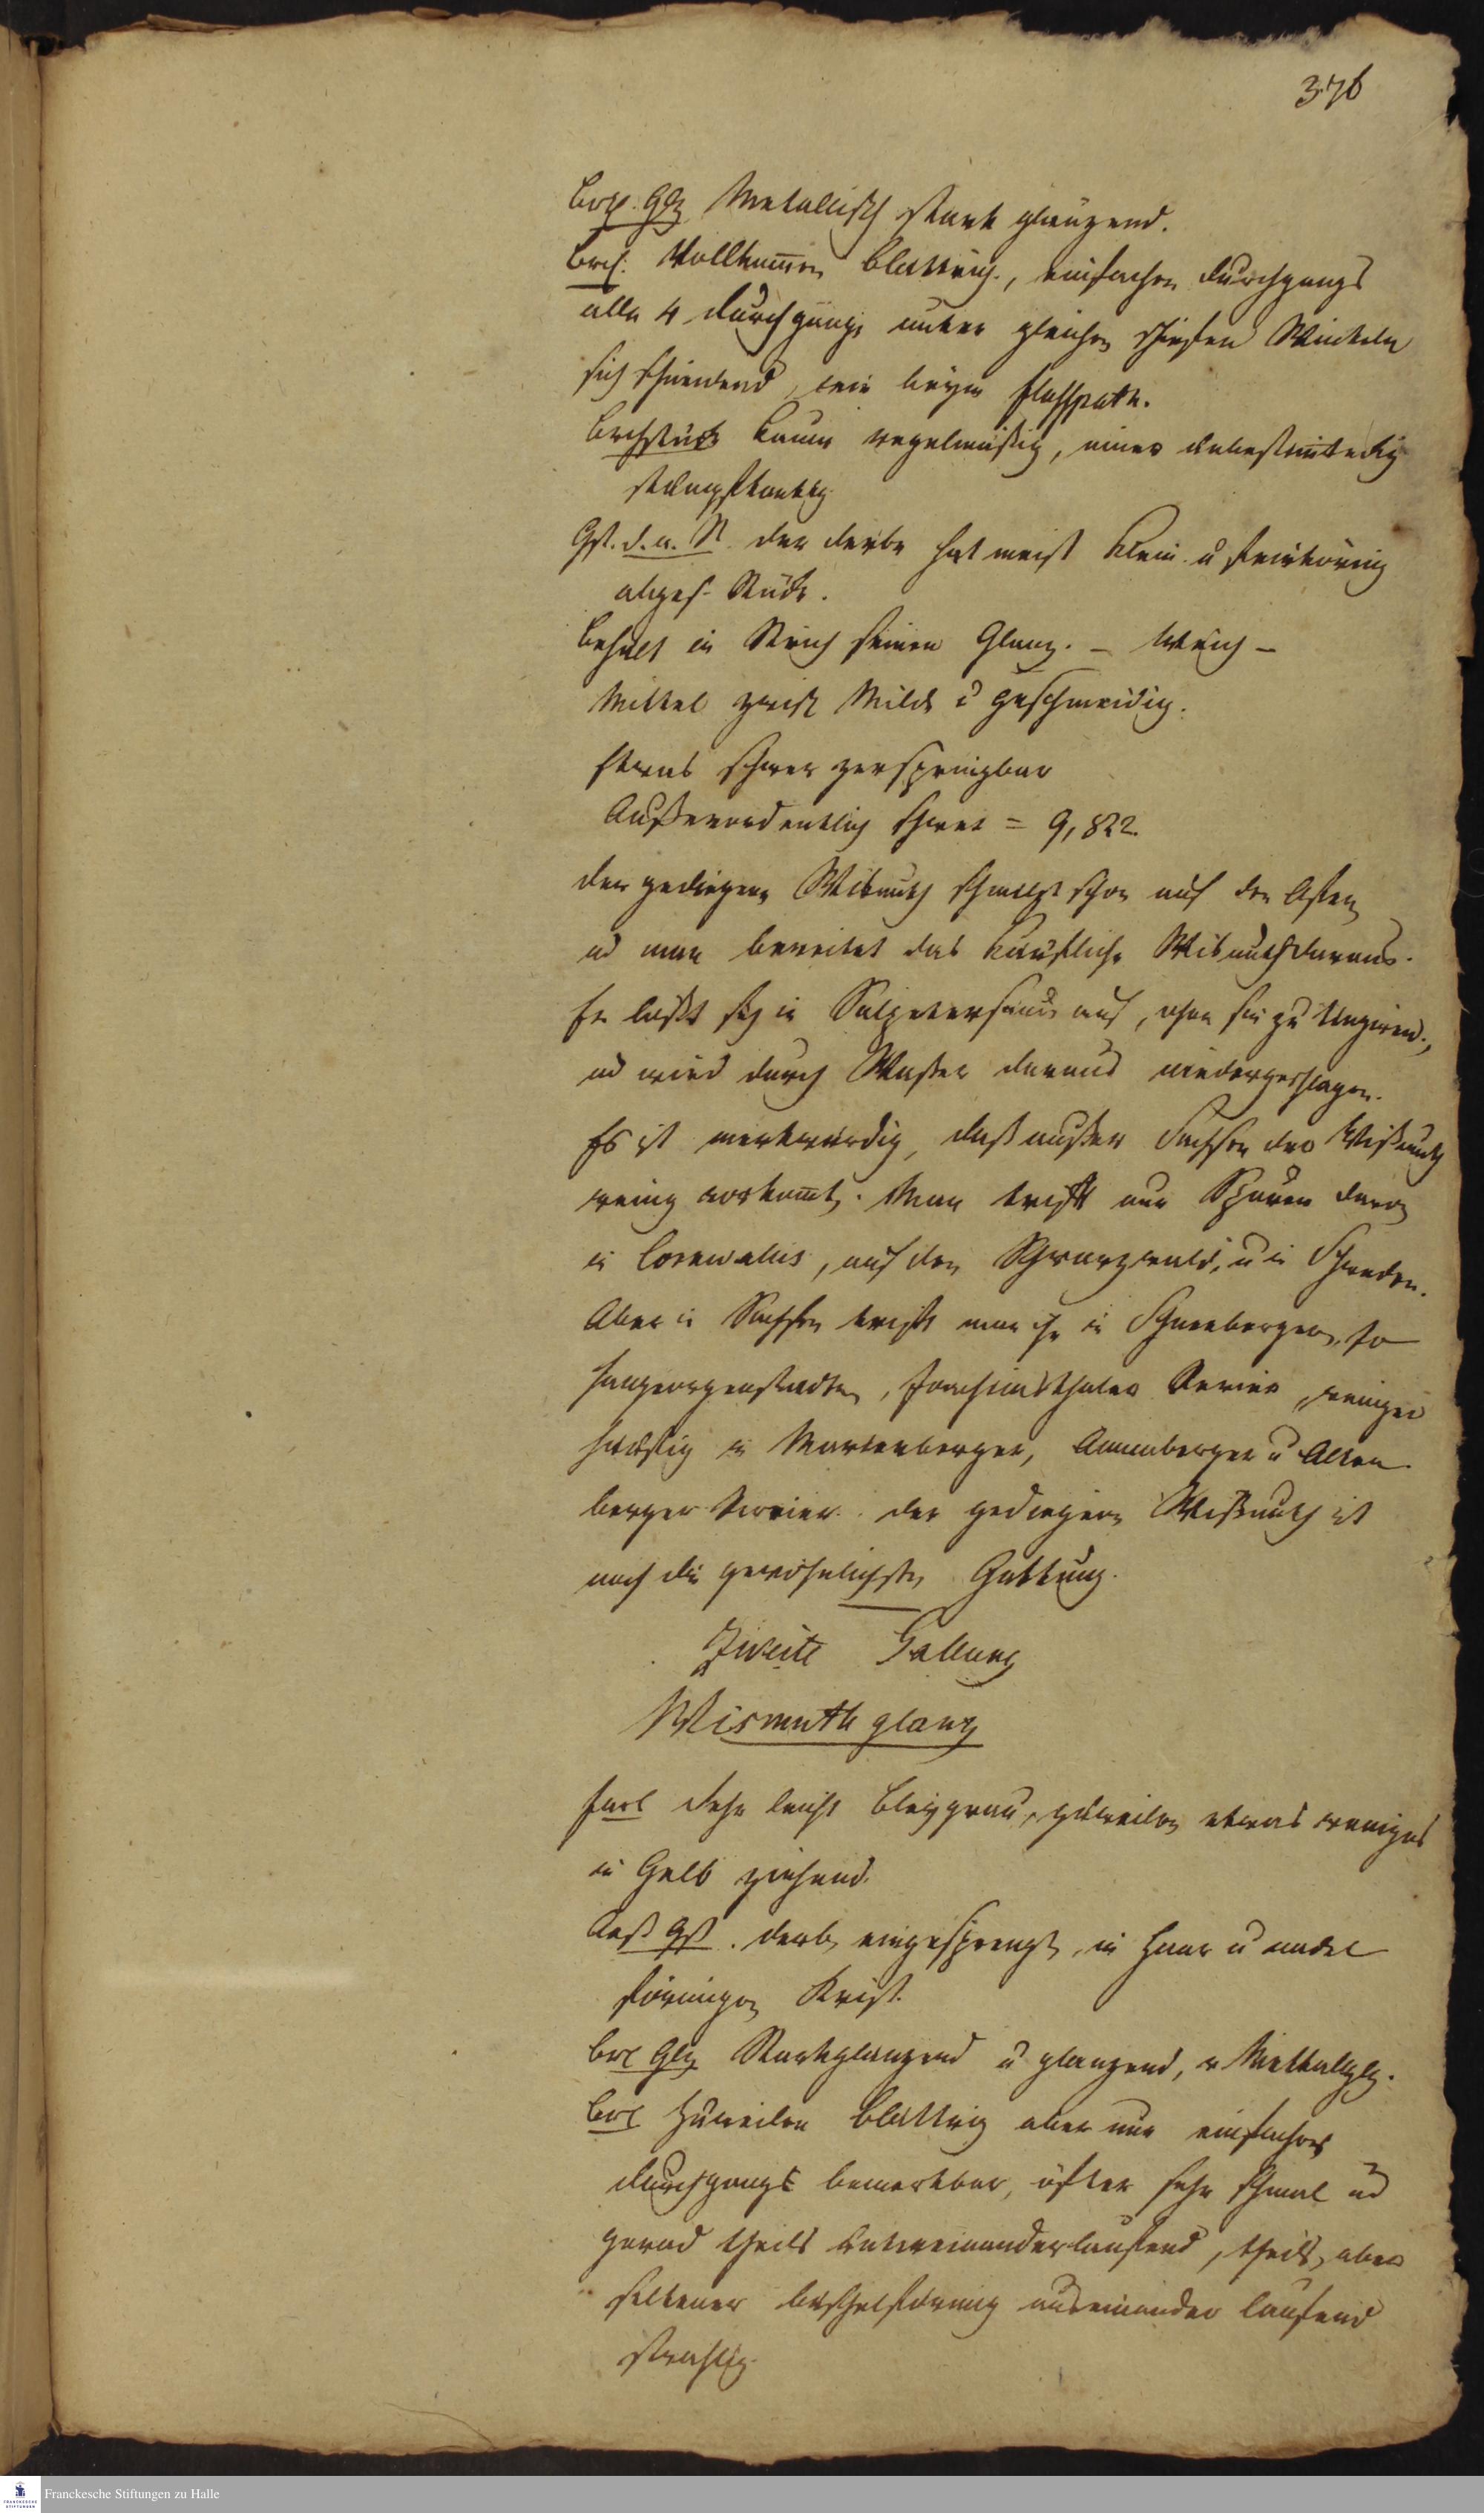 376
Brch. Glz. Metallisch stark glänzend.
Brch. Vollkomen blättrig, einfachen Durchgangs
alle 4 Durchgänge unter gleichen schiefen Winkeln
sich schneidend, wie beym Flusspath.
Brchstück kaum regelmäßig, eines unbestimteckig
stumpfkantig
Gst. d. a. St. der derbe hat meist klein u feinkörnig
abges. Stücke.
Behält im Strich seinen Glanz. – Weich –
Mittel zwisch Milde u geschmeidig.
Etwas schwer zerspringbar
Außerordentlich schwer = 9,822.
der gediegene Wismuth schmelzt schon auf den
ud man bereitet das käufliche Wismuth daraus.
Er löst sich in Salpetersäure auf, ohne sie zu tingiren,
ud wird durch Waßer daraus niedergeschlagen.
Es ist merkwürdig, daß außer Sachsen der Wißmuth
wenig vorkomt. Man trifft nur Spuren davon
in Cornwallis, auf dem Schwarzwald, u in Schweden.
Aber in Sachsen trifft man ihn in Schneeberger, Jo
hangeorgenstadter, Joachimsthaler Revier, weniger
häufig in Marienberger, Annaberger u Alten
berger Revier. der gediegene Wißmuth ist
noch die gewöhnlichste Gattung.
Zweite Gattung
Wismuth glanz
Farb sehr licht Bleygrau, zuweilen etwas weniges
in Gelb ziehend.
Aeß Gst. derb, eingesprengt, in Haar u nadel
förmigen Krist.
Brc Glz Starkglänzend u glänzend, v Mettalglz.
Brc Zuweilen blättrig aber nur einfachen
Durchgangs bemerkbar, öfter sehr schmal ud
gerad theils untereinanderlaufend, theils, aber
seltener büschelförmig auseinander laufend
strahlig.
Franckesche Stiftungen zu Halle